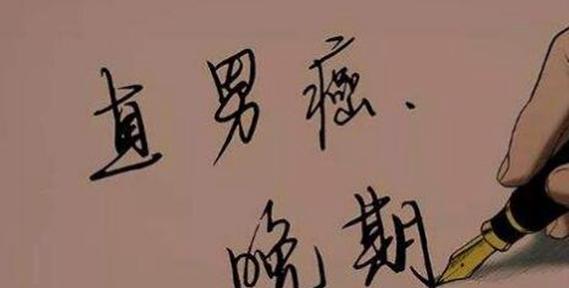 直男癌.
晚期